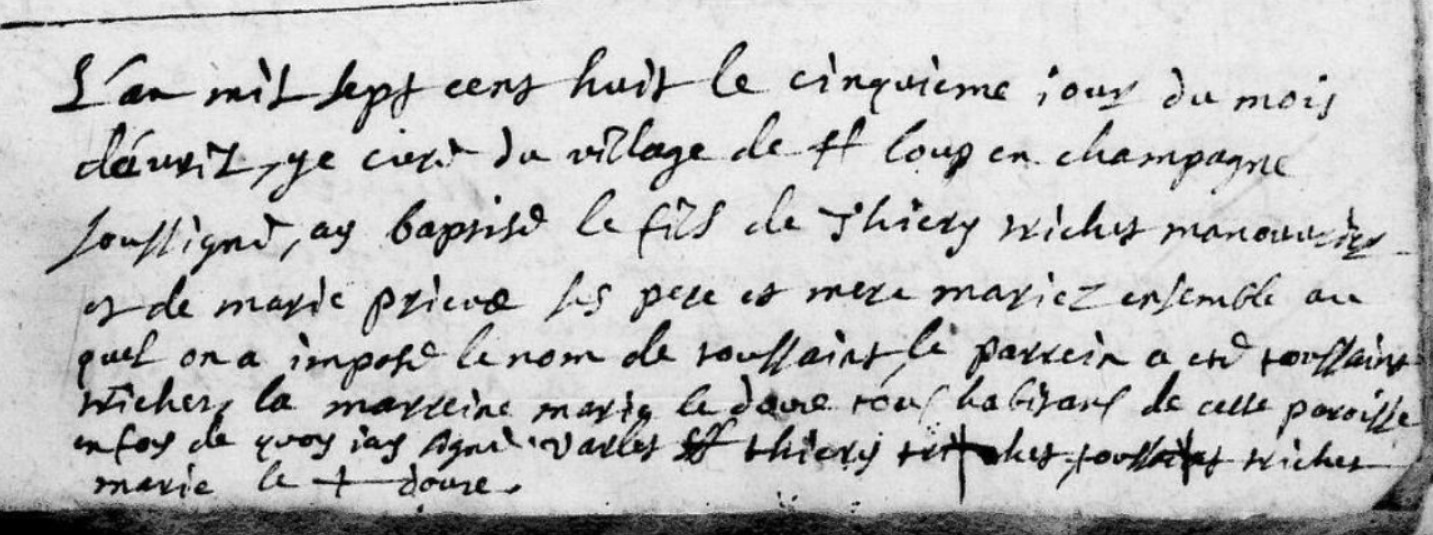 L'an mil sept cent huit le cinquieme iour du mois
d'avril, ge curé du village de st loup en champagne
soussigné, ay baptisé le fils de Thiery trichet manouvrier
et de marie prieur ses pere et mere mariez ensemble au
quel on a imposé le nom de toussaint, le parrein a eté toussaint
trichet, la marreine marie le doure tous habitans de cette paroisse
en foy de quoy iay signé varlet thiery trichet, toussaint trichet
marie le + doure.